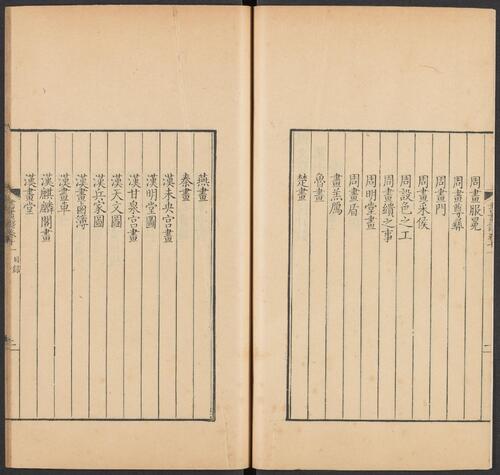 周畫服冕
周畫尊彝
周畫門
周畫采侯
周設色之工
周畫繢之事
周明堂畫
周畫盾
畫羔鴈
魯畫
楚畫
燕畫
秦畫
漢未央宮畫
漢明堂圖
漢甘泉宮畫
漢天文圖
漢兵家圖
漢畫鹵簿
漢畫車
漢麒麟閣畫
漢畫堂
目錄
二